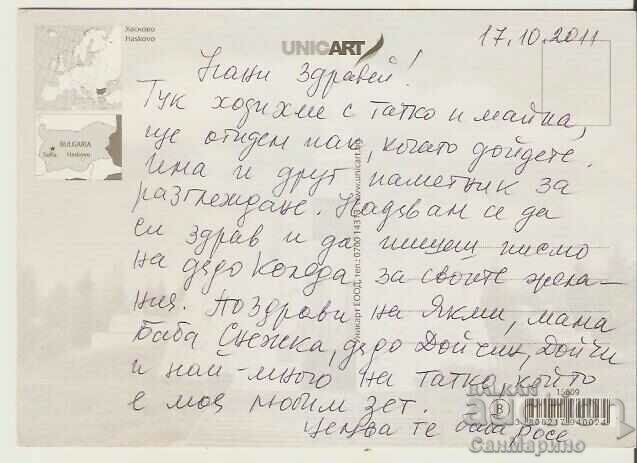 Хасково
Haskovo
BULGARIA
Sofia Haskovo
UNICART
17.10.2011
здравей!
Тук ходихме с татко и майка,
ще отидем пак, когато дойдете.
Има и друг паметник за
разглеждане. Надявам се да
си здрав и да пишеш писмо
на дядо Коледа за своите жела-
ния. Поздрави на Якми, мама
баба Снежка, дядо Дойчин, Дойчи
и най-много на татко, който
е моя любим зет.
Целува те баба Росе
Уникарт ЕООД, тел.: 0700 1431 www.unicart.bg
15609
B
3 800217 940024
BALKAN
auction
СанМарино